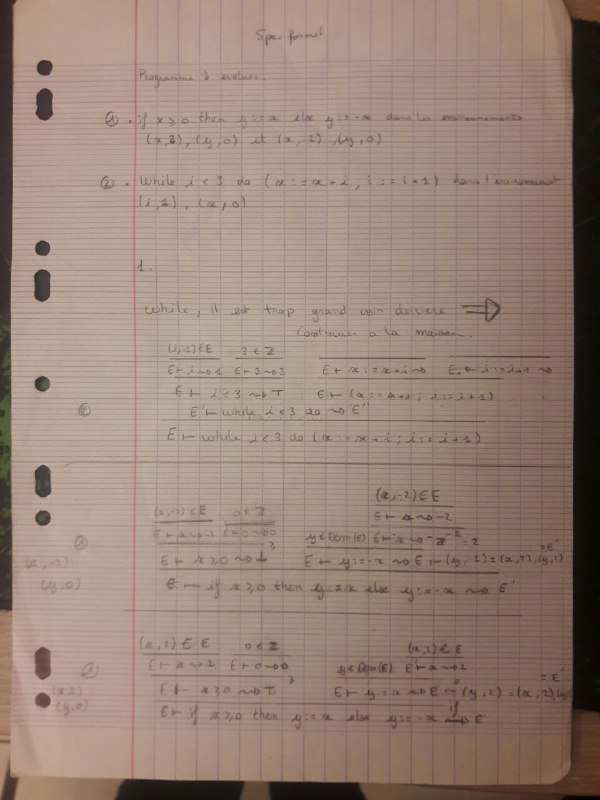 Spec formel
Programme à évaluer.
① • if x ⩾ 0 then y := x else y := -x dans les environnements
(x, 2), (y, 0) et (x, -2), (y, 0)
② • While i < 3 do (x := x + i, i := i + 1) dans l'environnement
(i, 1), (x, 0)
1.
While, il est trop grand voir derière ⇒
Continuer a la maison.
(i, 1) ∈ E 3 ∈ ℤ
E ⊢ i ⇝ 1 E ⊢ 3 ⇝ 3 E ⊢ x := x + i ⇝ E₁ ⊢ i := i + 1 ⇝
E ⊢ i < 3 ⇝ T E ⊢ (x := x + i ; i := i + 1)
② E' ⊢ while i < 3 do ⇝ E''
E ⊢ while i < 3 do (x := x + i ; i := i + 1)
(x, -2) ∈ E
(x, -2) ∈ E 0 ∈ ℤ E ⊢ x ⇝ -2
E ⊢ x ⇝ -2 E ⊢ 0 ⇝ 0 y ∈ Dom(E) E ⊢ -x ⇝ - -2 = 2
E ⊢ x ⩾ 0 ⇝ ⊥ E ⊢ y := -x ⇝ E (y, 2) = (x, 2), (y, 2) = E'
(x, -2)
(y, 0) E ⊢ if x ⩾ 0 then y := x else y := -x ⇝ E'
(x, 2) ∈ E 0 ∈ ℤ (x, 2) ∈ E
E ⊢ x ⇝ 2 E ⊢ 0 ⇝ 0 y ∈ Dom(E) E ⊢ x ⇝ 2
(x, 2) E ⊢ x ⩾ 0 ⇝ T E ⊢ y := x ⇝ E (y, 2) = (x, 2), (y, 2) = E'
(y, 0) E ⊢ if x ⩾ 0 then y := x else y := -x ⇝ if E'